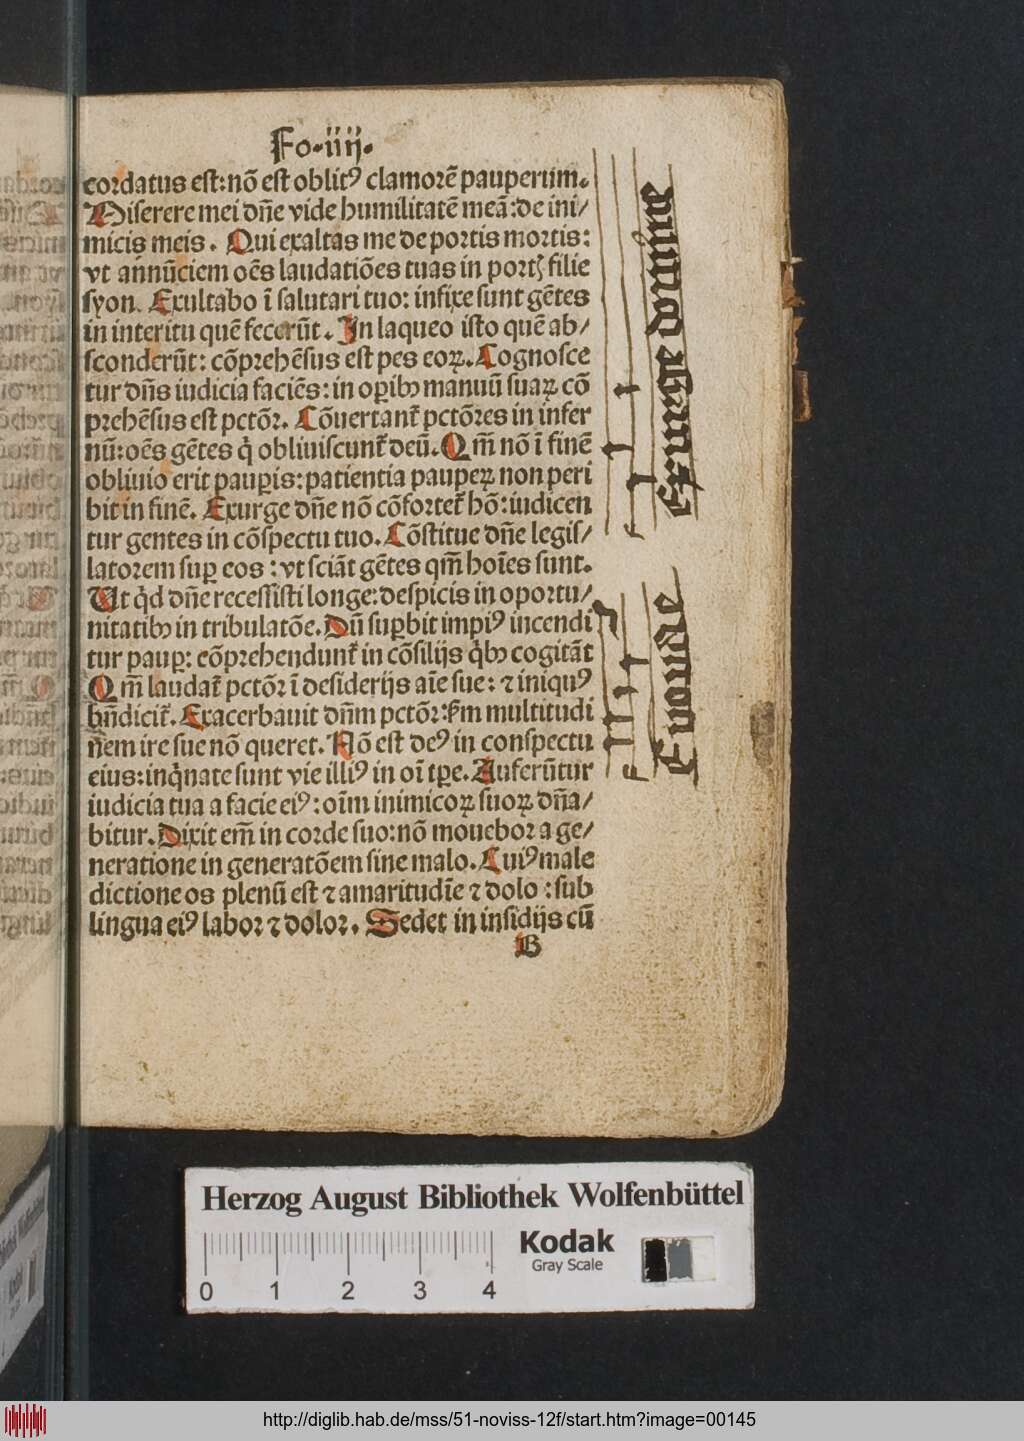 Fo·iiij·
cordatus est:nõ est oblitꝰ clamorẽ pauperum.
Miserere mei dñe vide humilitatẽ meã:de ini/
micis meis. Qui exaltas me de portis mortis:
vt annũciem oẽs laudatiões tuas in portꝭ filie
syon. Exultabo ĩ salutari tuo: infixe sunt gẽtes
in interitu quẽ fecerũt. In laqueo isto quẽ ab/
sconderũt: cõprehẽsus est pes eoꝝ. Cognosce
tur dñs iudicia faciẽs: in oꝑibꝰ manuũ suaꝝ cõ
prehẽsus est pctõr. Cõuertant᷑ pctõres in infer
nũ:oẽs gẽtes q̇ obliuiscunt᷑ deũ. Qm̃ nõ ĩ finẽ
obliuio erit pauꝑis:patientia paupeꝝ non peri
bit in finẽ. Exurge dñe nõ cõfortet᷑ hõ:iudicen
tur gentes in cõspectu tuo. Cõstitue dñe legis/
latorem suꝑ eos : vt sciãt gẽtes qm̃ hoĩes sunt.
Ut q̇d dñe recessisti longe:despicis in oportu/
nitatibꝰ in tribulatõe. Dũ suꝑbit impiꝰ incendi
tur pauꝑ: cõprehendunt᷑ in cõsilijs q̇bꝰ cogitãt
Qm̃ laudat᷑ pctõr ĩ desiderijs aĩe sue: ⁊ iniquꝰ
bñdicit᷑. Exacerbauit dñm pctõr:ẜm multitudi
nem ire sue nõ queret. Nõ est deꝰ in conspectu
eius:inq̇nate sunt vie illiꝰ in oĩ tꝑe. Auferũtur
iudicia tua a facie eiꝰ: oĩm inimicoꝝ suoꝝ dña/
bitur. Dixit em̃ in corde suo:nõ mouebor a ge/
neratione in generatõem sine malo. Cuiꝰ male
dictione os plenũ est ⁊ amaritudĩe ⁊ dolo : sub
lingua eiꝰ labor ⁊ dolor. Sedet in insidijs cũ
B
Exurge domine
Euouae
Herzog August Bibliothek Wolfenbüttel
0 1 2 3 4
Kodak
Gray Scale
http://diglib.hab.de/mss/51-noviss-12f/start.htm?image=00145